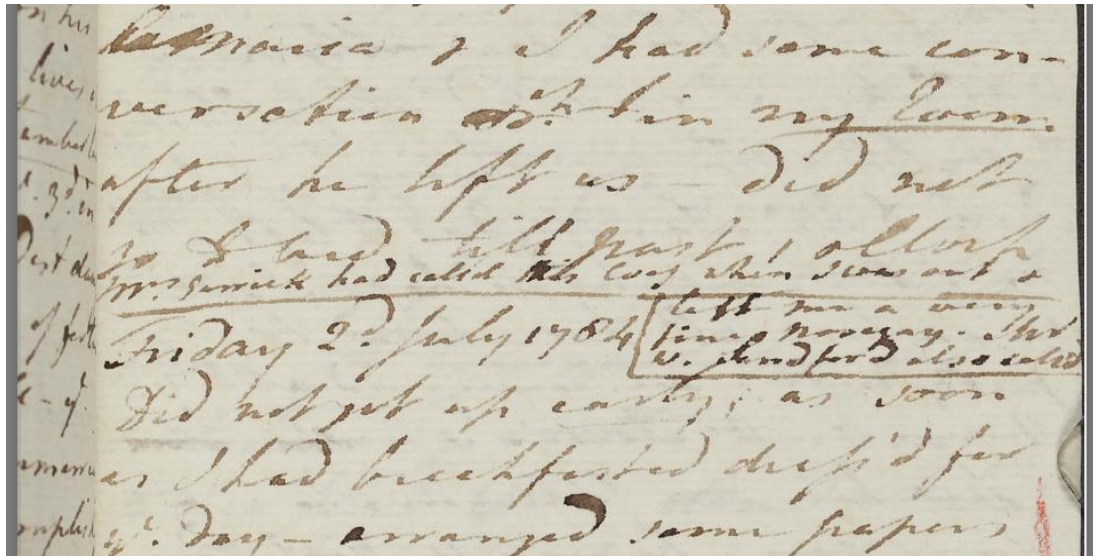 & I had some con-
versation wth. him in my Room
after he left us - did not
go to bed till past 1 oClock
Mrs. Garrick had called this day when I was out &
left me a very
fine Nosegay. Mr
W. Sandford also called
Friday 2d. July 1784
Did not get up early; as soon
as I had breakfasted dress'd for
ye. Day - arranged some papers